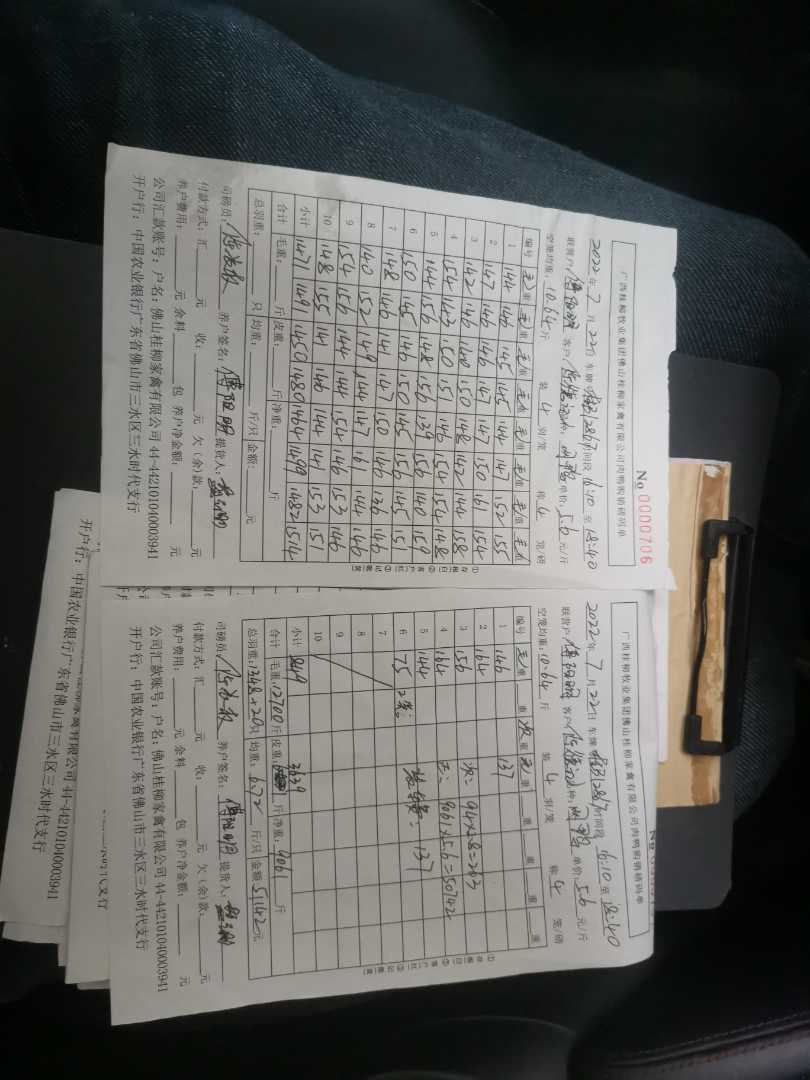 广西桂柳牧业集团佛山桂柳家禽有限公司肉鸭购销磅码单
No 0000706
2022年7月22日 车牌 时间段 16:10 至 18:40
联营户: 傅阳明 客户: 单价: 5.6 元/斤
空笼均重: 10.64 斤 装 4 羽/笼 称 4 笼/磅
编号 毛重 毛重 毛重 毛重 毛重 毛重 毛重 毛重
1 144 146 145 145 144 147 152 155
2 147 146 146 147 147 150 161 154
3 142 146 140 150 148 142 144 158
4 154 143 150 151 146 154 154 148
5 144 156 148 156 139 156 140 159
6 150 145 146 150 145 156 145 151
7 148 146 141 147 150 146 136 146
8 140 152 149 144 147 161 144 146
9 154 156 144 144 154 146 153 146
10 148 155 141 146 144 141 153 151
小计 1471 1491 1450 1480 1464 1499 1482 1514
合计 毛重: 斤 皮重: 斤 净重: 斤
总羽重: 只 均重: 斤/只 金额: 元
司磅员: 养户签名: 傅阳明 提货人:
付款方式: 汇 元 收: 元 欠(余)款: 元
养户费用: 元 余料 包 养户净金额: 元
公司汇款账号: 户名: 佛山桂柳家禽有限公司 44-442101040003941
开户行: 中国农业银行广东省佛山市三水区三水时代支行
①存根(白) ②客户(红) ③记账(黄)
广西桂柳牧业集团佛山桂柳家禽有限公司肉鸭购销磅码单
No
2022年7月22日 车牌 时间段 16:10 至 18:40
联营户: 傅阳明 客户: 种: 单价: 5.6 元/斤
空笼均重: 10.64 斤 装 4 羽/笼 称 4 笼/磅
编号 毛重 重 次重 毛重 重 重 重 重
1 146 137
2 164
3 156 次: 94×2.8=263
4 164 毛: 9061×5.6=50742
5 144 137
6 75 2笼
7
8
9
10
小计 849
合计 毛重: 12700 斤 皮重: 3639 斤 净重: 9061 斤
总羽重: 1348+20 只 均重: 6.72 斤/只 金额 51142 元
司磅员: 养户签名: 傅阳明 提货人:
付款方式: 汇 元 收: 元 欠(余)款: 元
养户费用: 元 余料 包 养户净金额: 元
公司汇款账号: 户名: 佛山桂柳家禽有限公司 44-442101040003941
开户行: 中国农业银行广东省佛山市三水区三水时代支行
①存根(白) ②客户(红) ③记账(黄)
家禽有限公司 44-442101040003941
开户行: 中国农业银行广东省佛山市三水区三水时代支行